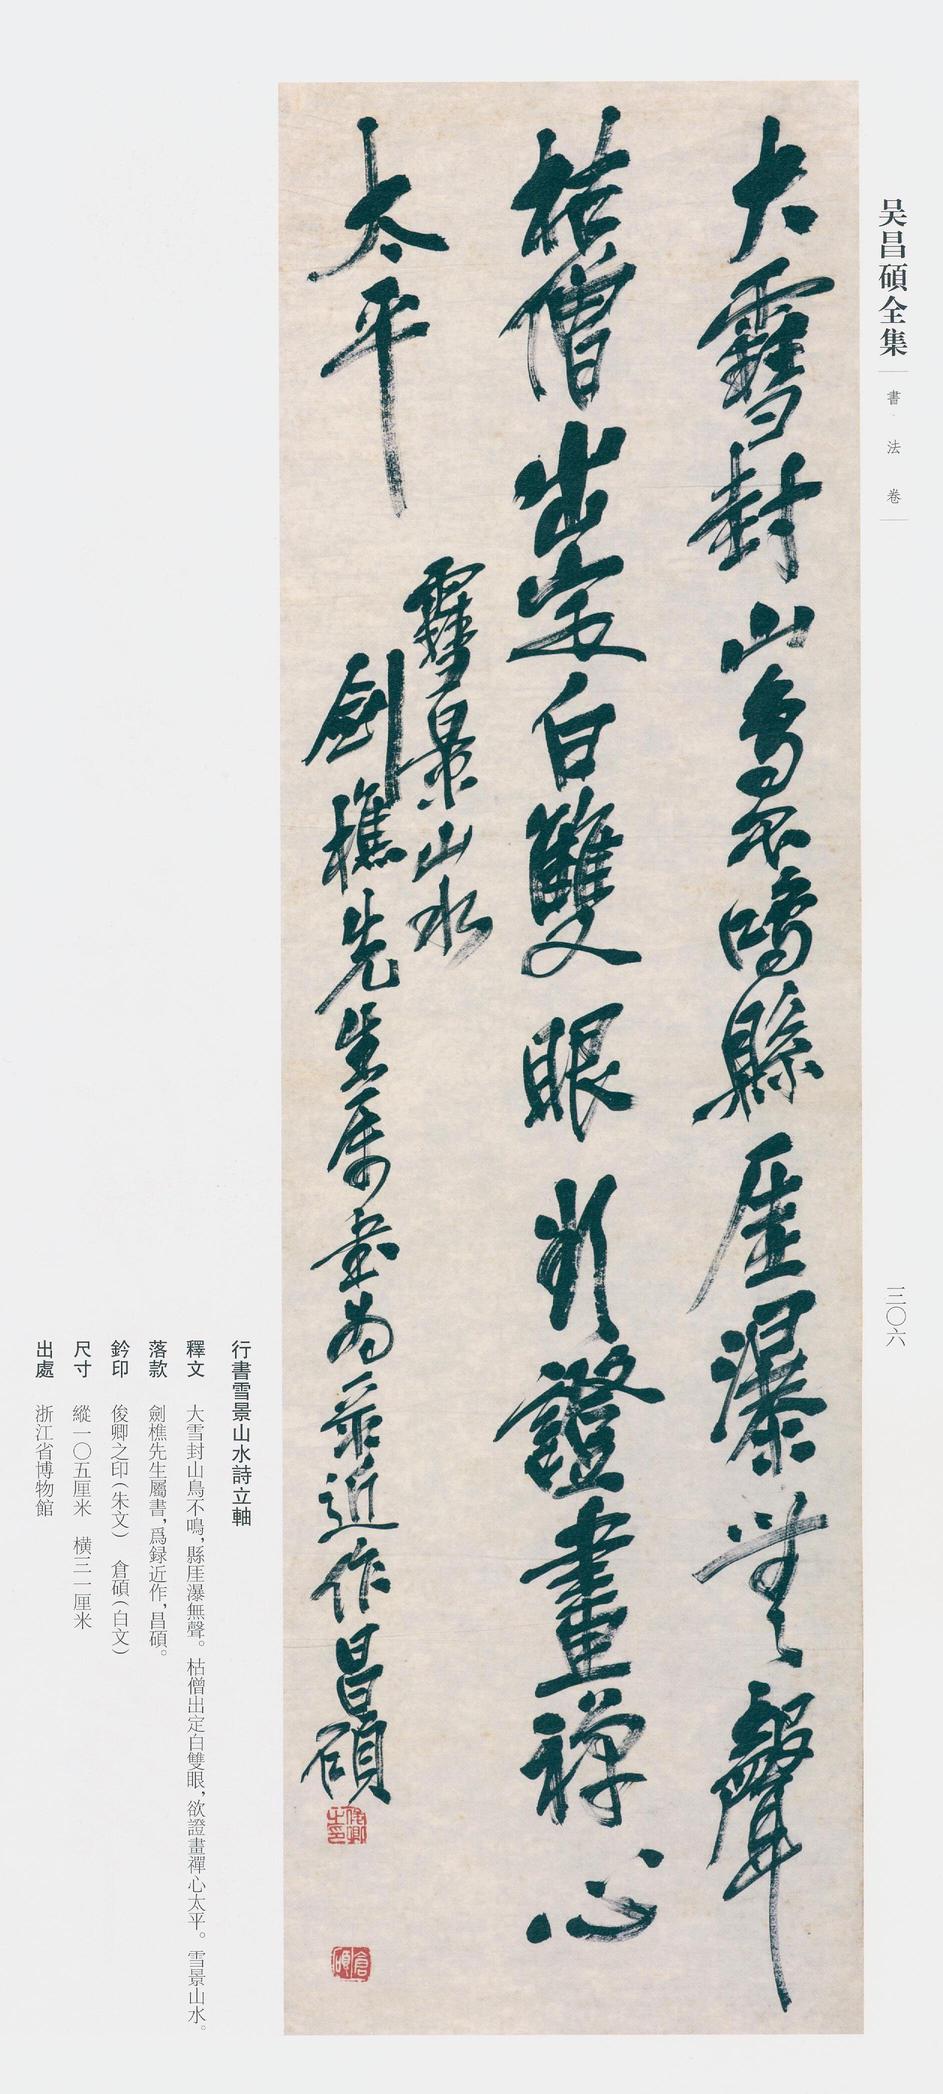 吴昌碩全集
書·法卷
三〇六
大雪封山鳥不鳴縣厓瀑無聲
枯僧出定白雙眼欲證畫禪心
太平
雪景山水
劍樵先生属書為录近作昌碩
俊卿之印
倉碩
行書雪景山水詩立軸
釋文 大雪封山鳥不鳴，縣厓瀑無聲。枯僧出定白雙眼，欲證畫禪心太平。雪景山水。
落款 劍樵先生屬書，爲録近作，昌碩。
鈐印 俊卿之印（朱文） 倉碩（白文）
尺寸 縱一〇五厘米 橫三一厘米
出處 浙江省博物館